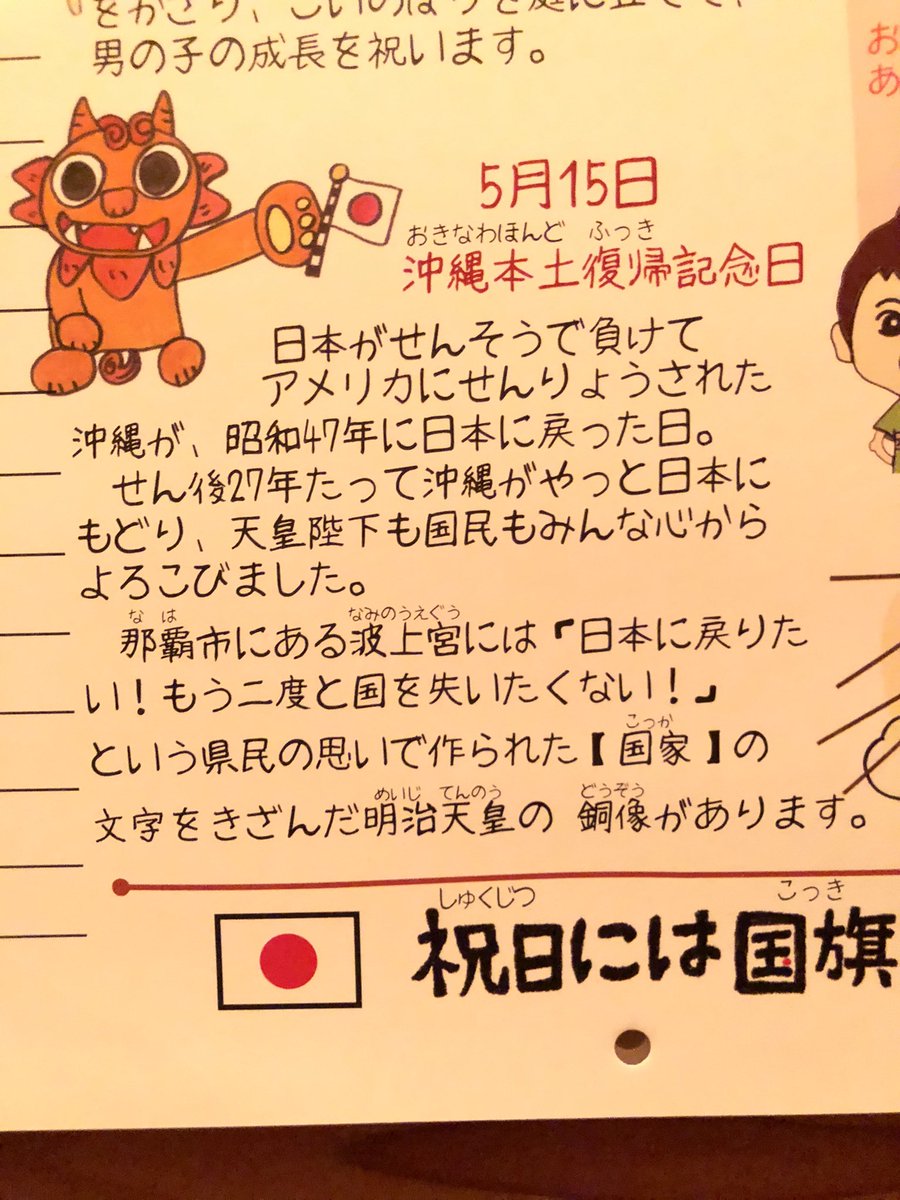 男の子の成長を祝います。
5月15日
おきなわほんど ふっき
沖縄本土復帰記念日
日本がせんそうで負けて
アメリカにせんりょうされた
沖縄が、昭和47年に日本に戻った日。
せん後27年たって沖縄がやっと日本に
もどり、天皇陛下も国民もみんな心から
よろこびました。
なは なみのうえぐう
那覇市にある波上宮には「日本に戻りた
い!もう二度と国を失いたくない!」
こっか
という県民の思いで作られた【国家】の
めいじ てんのう どうぞう
文字をきざんだ明治天皇の 銅像があります。
しゅくじつ こっき
祝日には国旗
お
あ